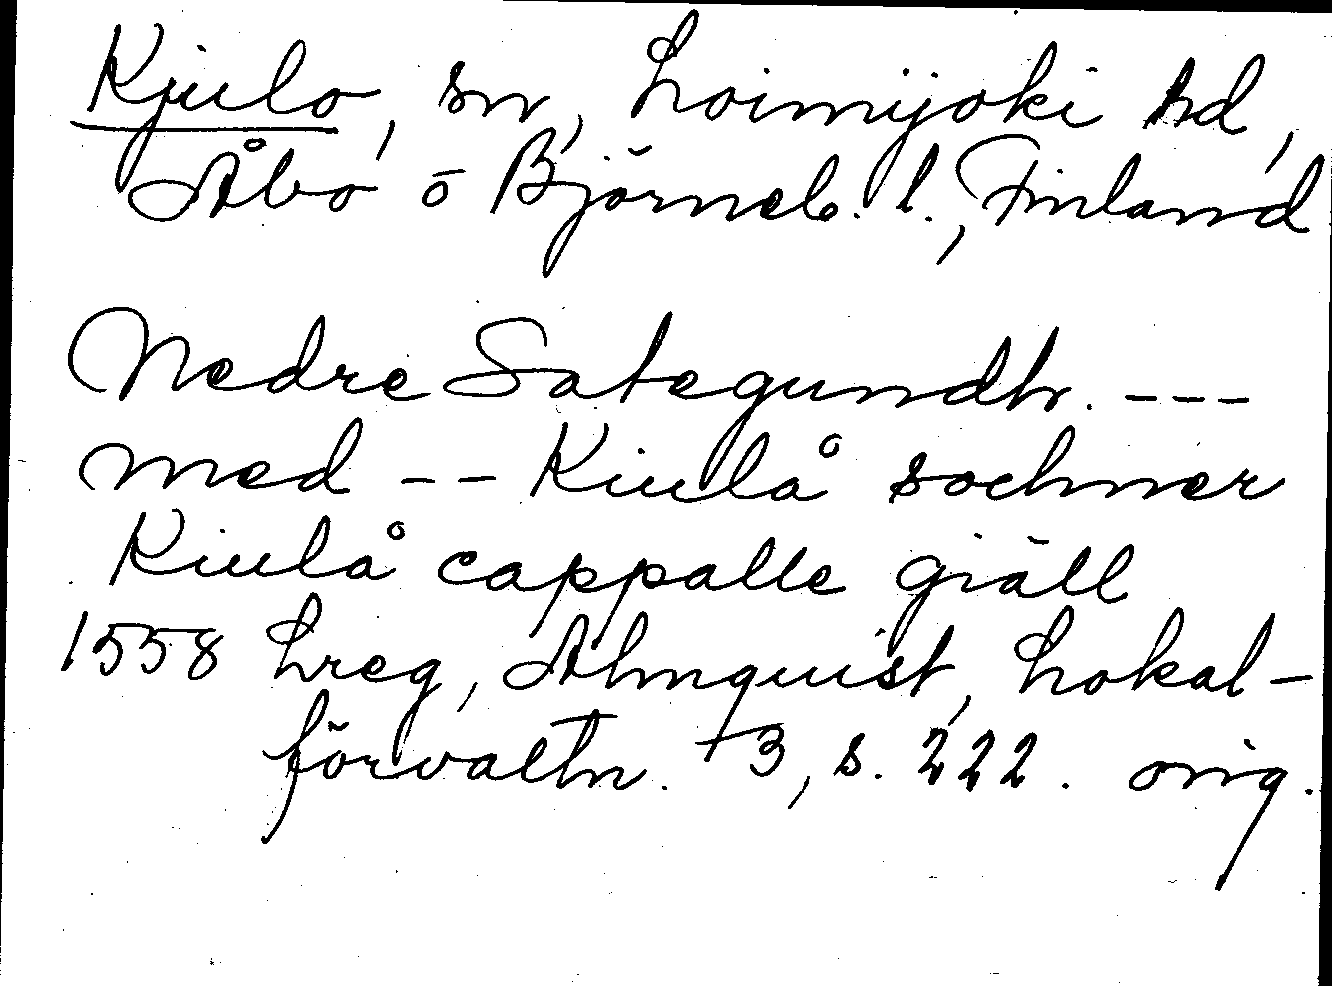 Kjulo, sn, Loimijoki hd,
Åbo o Björneb. l., Finland
Nedre Sategundh. ---
med -- Kiulå sochner
Kiulå cappalle giäll
1558 Lreg, Almquist, Lokal-
förvaltn. 3, s. 222. orig.